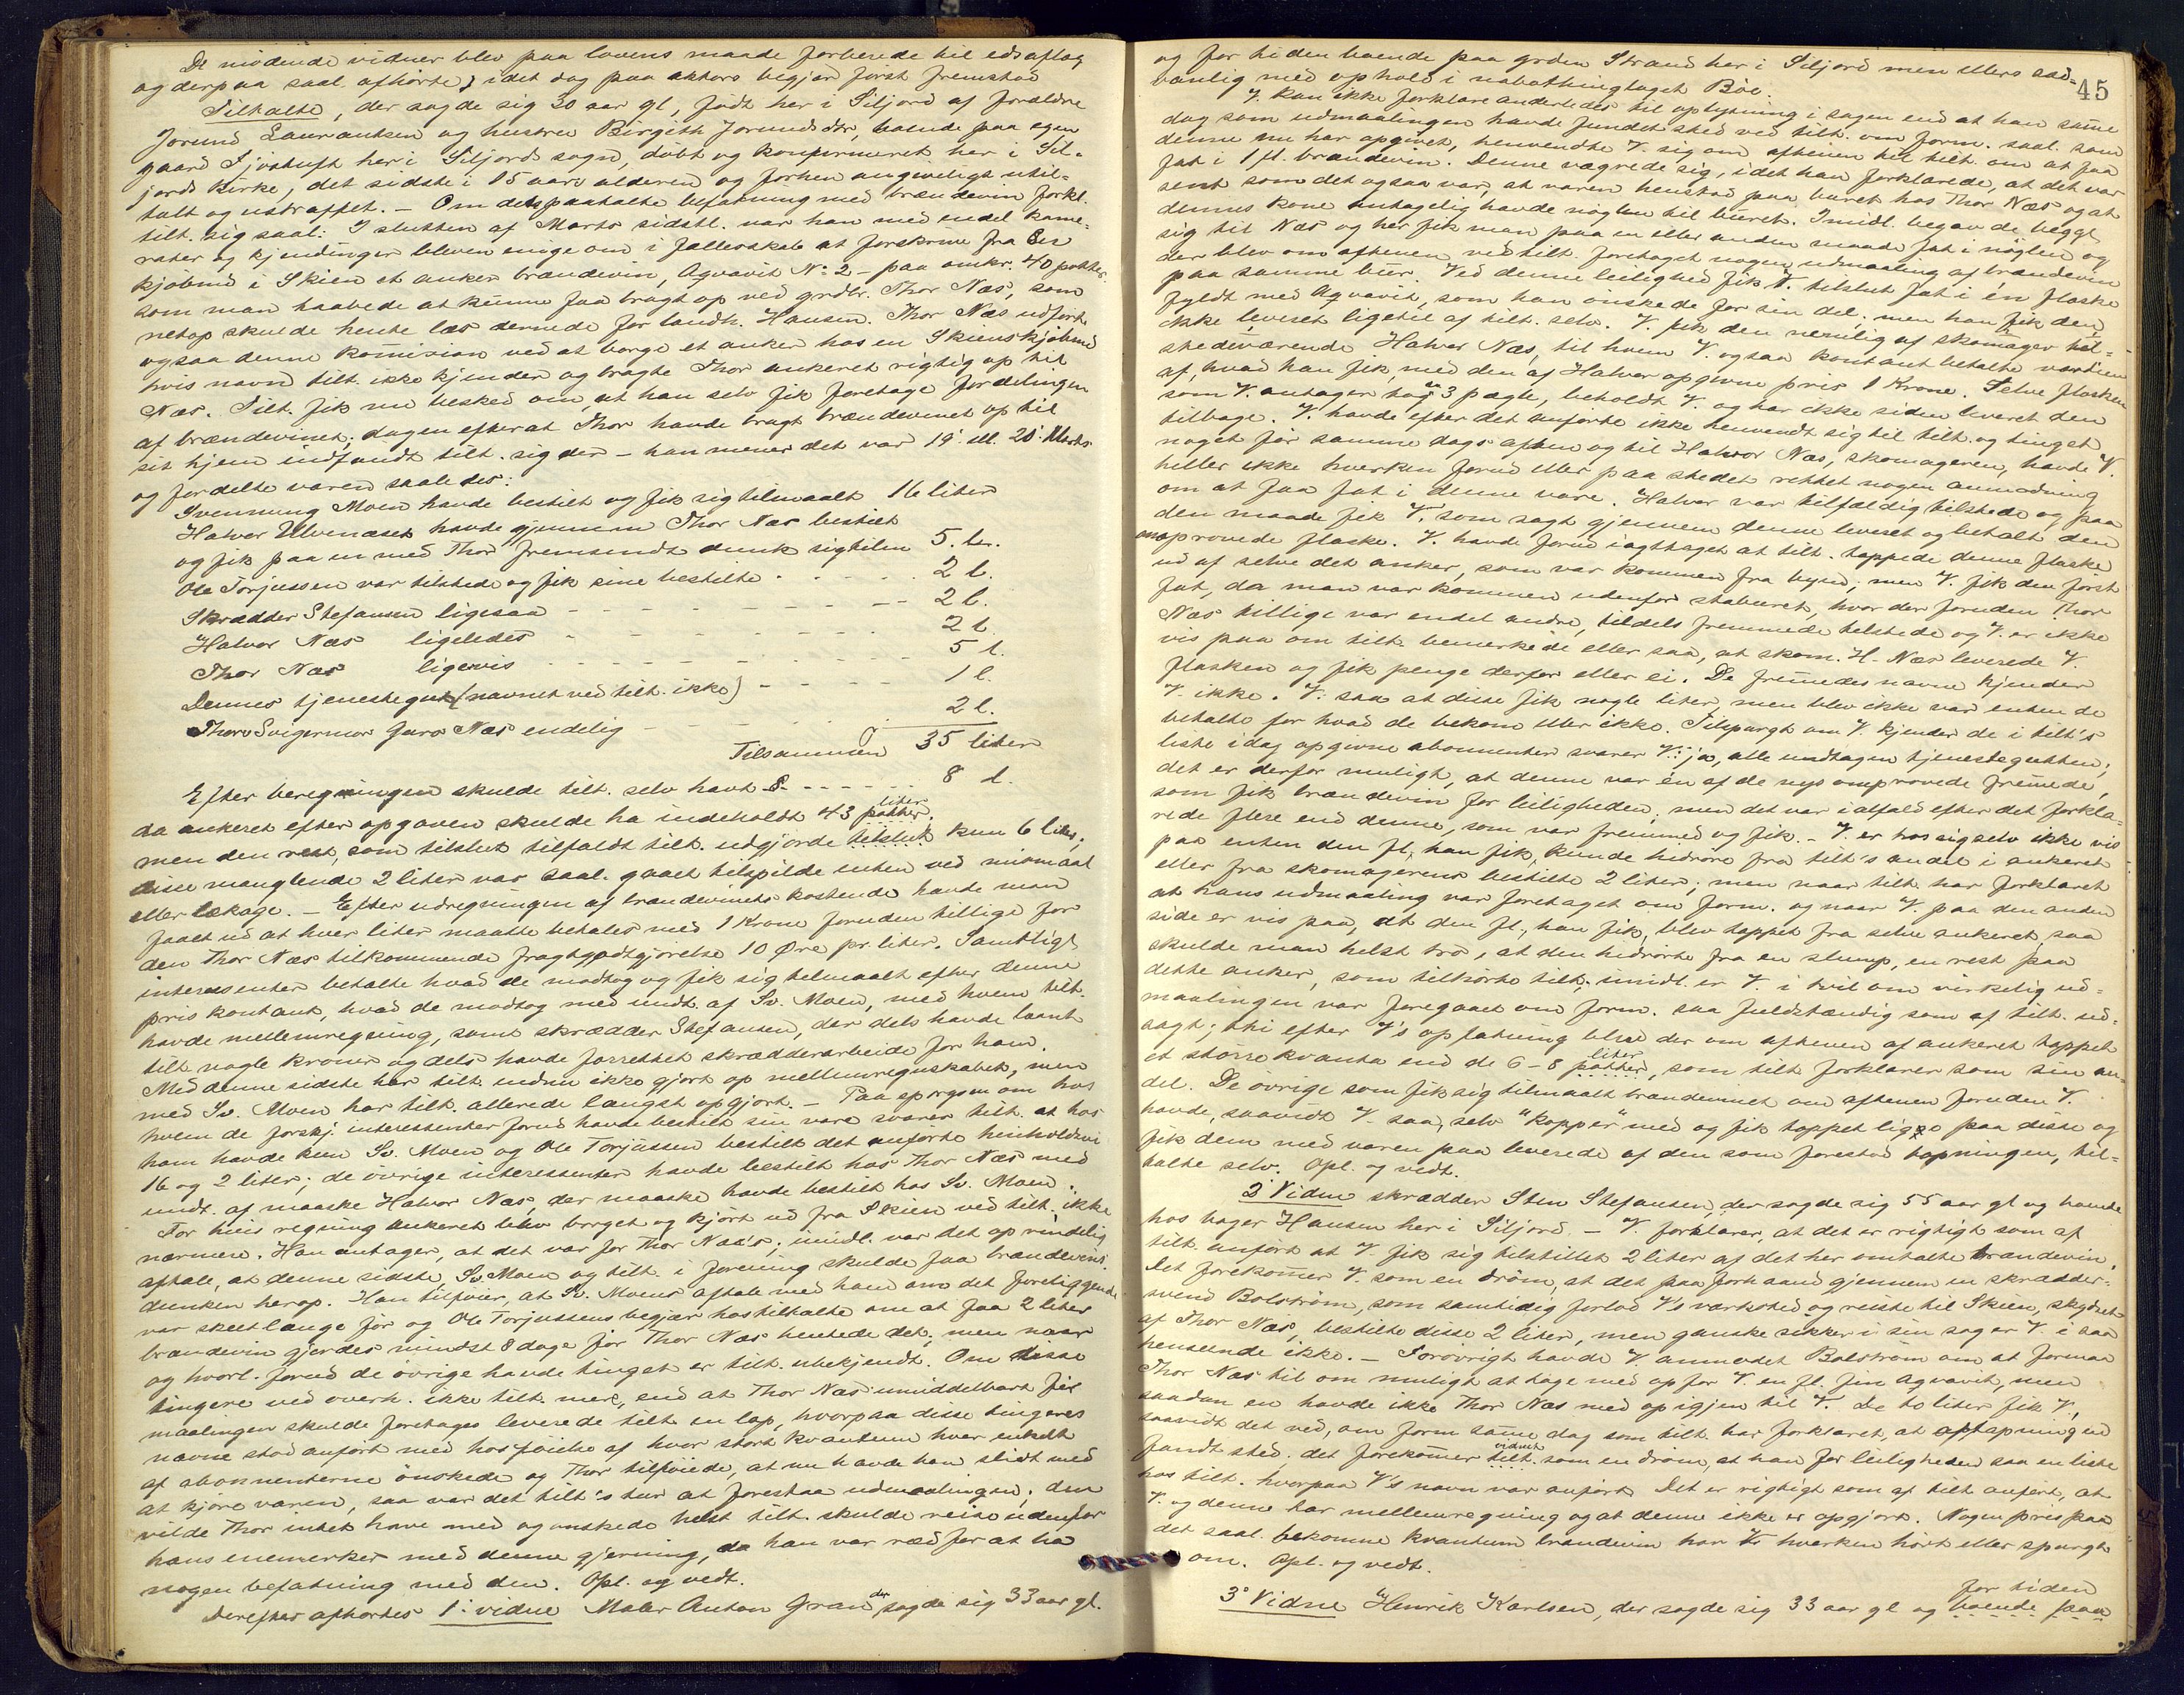 De mødende vidner blev paa lovens maade forberede til edsaflæg
og derpaa saal. afhørte, idet dog paa aktors begjær først fremstod
Tiltalte, der sagde sig 30 aar gl, født her i Siljord af forældre
Jorund Laurantsen og hustru Birgith Jorundsdtr, boende paa egen
gaard Sjvatuft her i Siljord sogn, døbt og konfirmeret her i Sil-
jords kirke, det sidste i 15 aars alderen og forhen angiveligt util-
talt og ustraffet. — Om den paatalte befatning med brændevin forkl.
tilt. sig saal: I slutten af Marts sidstl. var han med endel kame-
rater og kjendinger bleven enige om i fællerskab at forskrive fra en
kjøbmd i Skien et anker brændevin, Aqvavit No 2 — paa omkr. 40 potter
som man haabede at kunne faa bragt op ved grdbr. Thor Næs, som
netop skulde hente læs dernede for landh. Hansen. Thor Næs udførte
ogsaa denne komision ved at borge et anker hos en Skienskjøbmd
hvis navn tilt. ikke kjender og bragte Thor ankeret rigtig op til
Næs. Tilt. fik nu besked om, at han selv fik foretage fordelingen
af brændevinet; dagen efter at Thor havde bragt brændevinet op til
sit hjem indfandt tilt. sig der — han mener det var 19. ell. 20. Marts
og fordelte varen saaledes:
Svennung Moen havde bestilt og fik sig tilmaalt 16 liter
Halvor Ulvenæset havde gjennem Thor Næs bestilt
og fik paa en med Thor fremsendt dunk sig tilm 5. ltr.
Ole Torjussen var tilstede og fik sine bestilte - - - - 2 l.
Skrædder Stefansen ligesaa - - - - - - - 2 l.
Halvor Næs ligeledes - - - - - - - 2 l.
Thor Næs ligevis - - - - - - - 5 l.
Dennes tjenestegut (navnet ved tilt. ikke) - - - - 1 l.
Thors Svigermor Guro Næs endelig - - - 2 l.
Tilsammen 35 liter
Efter beregningen skulde tilt. selv havt 8. - - - - 8 l.
da ankeret efter opgaven skulde ha indeholdt 43 potter liter.
men den rest, som tilslut tilfaldt tilt. udgjorde tilslut kun 6 liter;
disse manglende 2 liter var saal. gaaet tilspilde enten ved mismaal
eller lækage. — Efter udregningen af brændevinets kostende havde man
faaet ud at hver liter maatte betales med 1 Krone foruden tillige for
den Thor Næs tilkommende fragtgodtgjørelse 10 Øre pr. liter. Samtlige
interessenter betalte hvad de modtog og fik sig tilmaalt efter denne
pris kontant, hvad de modtog med undt. af Sv. Moen, med hvem tilt.
havde mellemregning, samt skrædder Stefansen, der dels havde laant
tilt. nogle kroner og dels havde forrettet skrædderarbeide for ham.
Med denne sidste har tilt. endnu ikke gjort op mellemregnskabet, men
med Sv. Moen har tilt. allerede længst opgjort. — Paa spørgsm om hos
hvem de forskj. interessenter forud havde bestilt sin vare svarer tilt. at hos
ham havde kun Sv. Moen og Ole Torjussen bestilt det anførte henholdsvis
16 og 2 liter; de øvrige interessenter havde bestilt hos Thor Næs med
undt. af maaske Halvor Næs, der maaske havde bestilt hos Sv. Moen.
For hvis regning ankeret blev borget og kjørt ud fra Skien ved tilt. ikke
nærmere. Han antager, at det var for Thor Næs's; imidl. var det oprindelig
aftale, at denne sidste, Sv. Moen og tilt. i forening skulde faa brændevins-
dunken herop. Han tilføier, at Sv. Moens aftale med ham om det foreliggende
var skeet længe før og Ole Torjussens begjær hos tiltalte om at faa 2 liter
brændevin gjordes mindst 8 dage før Thor Næs hentede det; men naar
og hvorl. forud de øvrige havde tinget er tilt. ubekjendt. Om disse
tingere ved overh. ikke tilt. mer, end at Thor Næs umiddelbart før
maalingen skulde foretages leverede tilt. en lap, hvorpaa disse tingeres
navne stod anført med hosføielse af hvor stort kvantum hver enkelt
af abonnenterne ønskede og Thor tilføiede, at nu havde han slidt med
at kjøre varen, saa var det tilt's tur at forestaa udmaalingen; den
vilde Thor intet have med og ønskede helst tilt. skulde reise udenfor
hans enemerker med denne gjerning, da han var ræd for at ha
nogen befatning med den. Opl. og vedt.
Derefter afhørtes 1. vidne Maler Anton Gran der sagde sig 33 aar gl.
45
og for tiden boende paa grden Strand her i Siljord men ellers sæd-
vanlig med ophold i nabothinglaget Bøe.
V. kan ikke forklare anderledes til oplysning i sagen end at han samme
dag som udmaalingen havde fundet sted ved tilt. om form. saal. som
denne nu har opgivet, henvendte V. sig om aftenen til tilt. om at faa
fat i 1 fl. brændevin. Denne vægrede sig, idet han forklarede, at det var
sent som det ogsaa var, at varen henstod paa buret hos Thor Næs og at
dennes kone antagelig havde nøglen til buret. Imidl. begav de begge
sig til Næs og her fik man paa en eller anden maade fat i nøglen og
der blev om aftenen ved tilt. foretaget nogen udmaaling af brændevin
paa samme bur. Ved denne leilighed fik V. tilslut fat i én flaske
fyldt med Aqvavit, som han ønskede for sin del; men han fik den
ikke leveret ligetil af tilt. selv. V. fik den nemlig af skomager til-
stedeværende Halvor Næs, til hvem V. ogsaa kontant betalte værdien
af, hvad han fik, med den af Halvor opgivne pris 1 Krone. Selve flasken
som V. antager tog en 3 pægle, beholdt V. og har ikke siden leveret den
tilbage. V. havde efter det anførte ikke henvendt sig til tilt. og tinget
noget før samme dags aften og til Halvor Næs, skomageren, havde V.
heller ikke hverken forud eller paa stedet rettet nogen anmodning
om at faa fat i denne vare. Halvor var tilfældig tilstede og paa
den maade fik V. som sagt gjennem denne leveret og betalt den
omprovede flaske. V. havde forud iagttaget at tilt. tappede denne flaske
ud af selve det anker, som var kommen fra byen; men V. fik den først
fat, da man var kommen udenfor stabueret, hvor der foruden Thor
Næs tillige var endel andre, tildels fremmede tilstede og V. er ikke
vis paa om tilt. bemerkede eller saa, at skom. H. Næs leverede V.
flasken og fik penge derfor eller ei. De fremmedes navne kjender
V. ikke. V. saa at disse fik nogle liter, men blev ikke var enten de
betalte for hvad de bekom eller ikke. Tilspurgt om V. kjender de i tilt's
liste idag opgivne abonnenter svarer V.: ja, alle undtagen tjenestegutten;
det er derfor muligt, at denne var én af de nys omprovede fremmede,
som fik brændevin for leiligheden; men det var i alfald efter det forkla-
rede flere end denne, som var fremmed og fik. — V. er hos sig selv ikke vis
paa enten den fl., han fik, kunde hidrøre fra tilt's andel i ankeret
eller fra skomagerens bestilte 2 liter; men naar tilt. har forklaret
at hans udmaaling var foretaget om form. og naar V. paa den anden
side er vis paa, at den fl., han fik, blev tappet fra selve ankeret, saa
skulde man helst tro, at den hidrørte fra en slump, en rest paa
dette anker, som tilhørte tilt.; imidl. er V. i tvil om virkelig ud-
maalingen var foregaaet om form. saa fuldstændig som af tilt. ud-
sagt; thi efter V's opfatning blev der om aftenen af ankeret tappet
et større kvanta end de 6–8 potter liter, som tilt. forklarer som sin an-
del. De øvrige som fik sig tilmaalt brændevinet om aftenen foruden V.
havde, saavidt V. saa, selv "kopper" med og fik tappet lige paa disse og
fik dem med varen paa leverede af den som forestod tapningen, til-
talte selv. Opl. og vedt.
2' Vidne skrædder Sten Stefansen, der sagde sig 55 aar gl og boende
hos bager Hansen her i Siljord. — V. forklarer, at det er rigtigt som af
tilt. anført at V. fik sig tilstillet 2 liter af det her omtalte brændevin.
Det forekommer V. som en drøm, at det paa forhaand gjennem en skrædder-
svend Bolstrøm, som samtidig forlod V's værksted og reiste til Skien, skydset
af Thor Næs, bestilte disse 2 liter, men ganske sikker i sin sag er V. i saa
henseende ikke. — Forøvrigt havde V. anmodet Bolstrøm om at formaa
Thor Næs til om muligt at tage med op for V. en fl. fin Aqvavit, men
saadan en havde ikke Thor Næs med op igjen til V. De to liter fik V.,
saavidt det ved, om form samme dag som tilt. har forklaret, at aftapningen
fandt sted; det forekommer tilt. vidnet som en drøm, at han for leiligheden saa en liste
hos tilt. hvorpaa V's navn var anført. Det er rigtigt som af tilt. anført, at
V. og denne har mellemregning og at denne ikke er opgjort. Nogen pris paa
det saal. bekomne kvantum brændevin har V. hverken hørt eller spurgt
om. Opl. og vedt.
3' Vidne Henrik Karlsen, der sagde sig 33 aar gl og for tiden boende paa